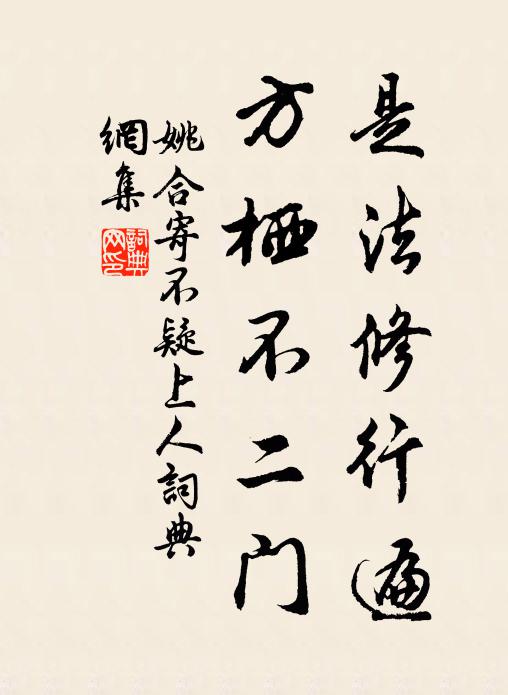 是法修行遍
方栖不二门
姚合寄不疑上人詞典
網集
詞典
网印